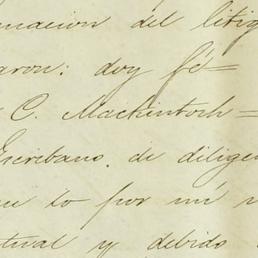 uacion del litig
aron: doy fé=
C. Mackintosh=
Escribano, de diligen
ue lo por mí
tual y debido